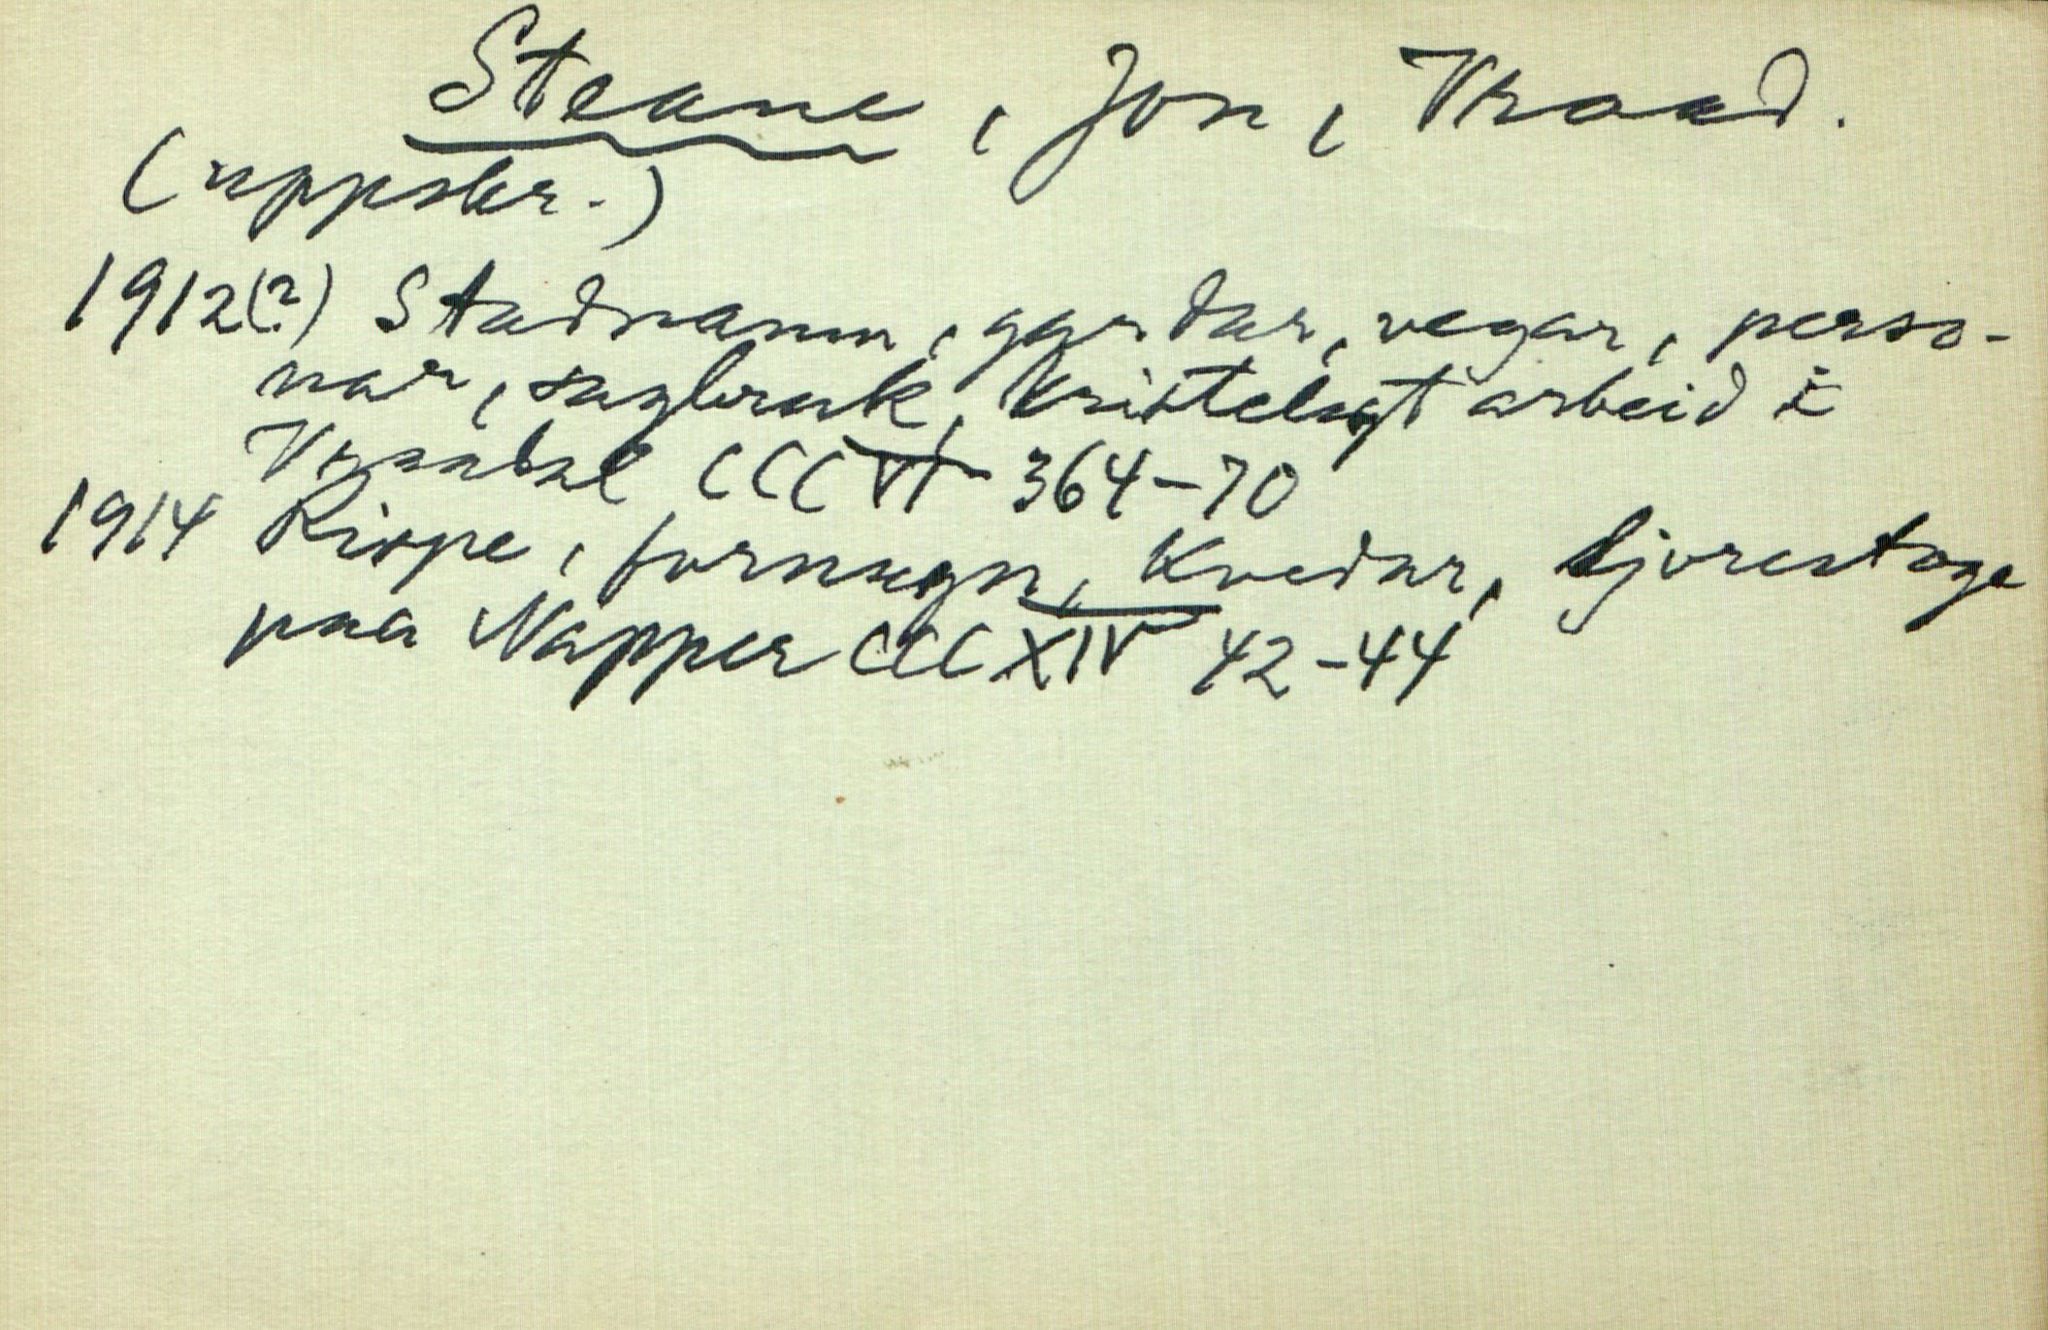 Steane, Jon, Vraad.
(uppskr.)
1912(?) Stadnamn, gardar, vegar, perso-
nar, sagbruk, kristelegt arbeid i
Vraadal CCCVI 364-70
1914 Rispe, fornsegn, Kvedar, Ljorestoge
paa Napper CCCXIV 42-44